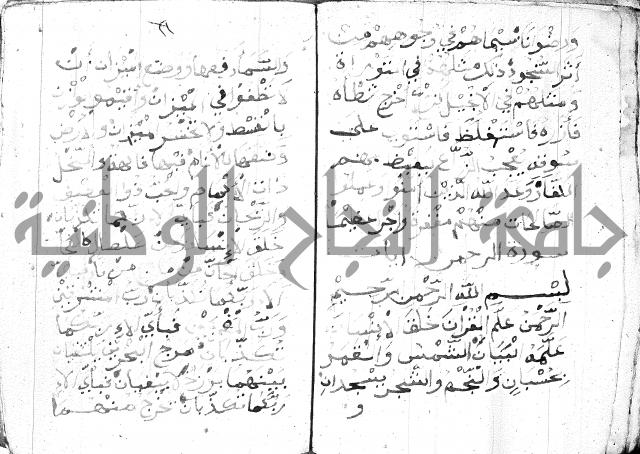 ورضوانا سيماهم في وجوههم من
أثر السجود ذلك مثلهم في التوراة
ومثلهم في الانجيل كزرع أخرج شطأه
فأزره فاستغلظ فاستوى على
سوقه يعجب الزراع ليغيظ بهم
الكفار وعد الله الذين آمنوا وعملوا
الصالحات منهم مغفرة وأجرا عظيما
سورة الرحمن
بسم الله الرحمن الرحيم
الرحمن علم القرآن خلق الانسان
علمه البيان الشمس والقمر
بحسبان والنجم والشجر يسجدان
و
٢٦
والسماء رفعها ووضع الميزان ان
لا تطغوا في الميزان وأقيموا الوزن
بالقسط ولا تخسروا الميزان والارض
وضعها للأنام فيها فاكهة والنخل
ذات الأكمام والحب ذو العصف
والريحان فبأي الاء ربكما تكذبان
خلق الانسان من صلصال كالفخار
وخلق الجان من مارج من نار فبأي
الاء ربكما تكذبان رب المشرقين
ورب المغربين فبأي الاء ربكما
تكذبان مرج البحرين يلتقيان
بينهما برزخ لا يبغيان فبأي الاء
ربكما تكذبان يخرج منهما
جامعة النجاح الوطنية